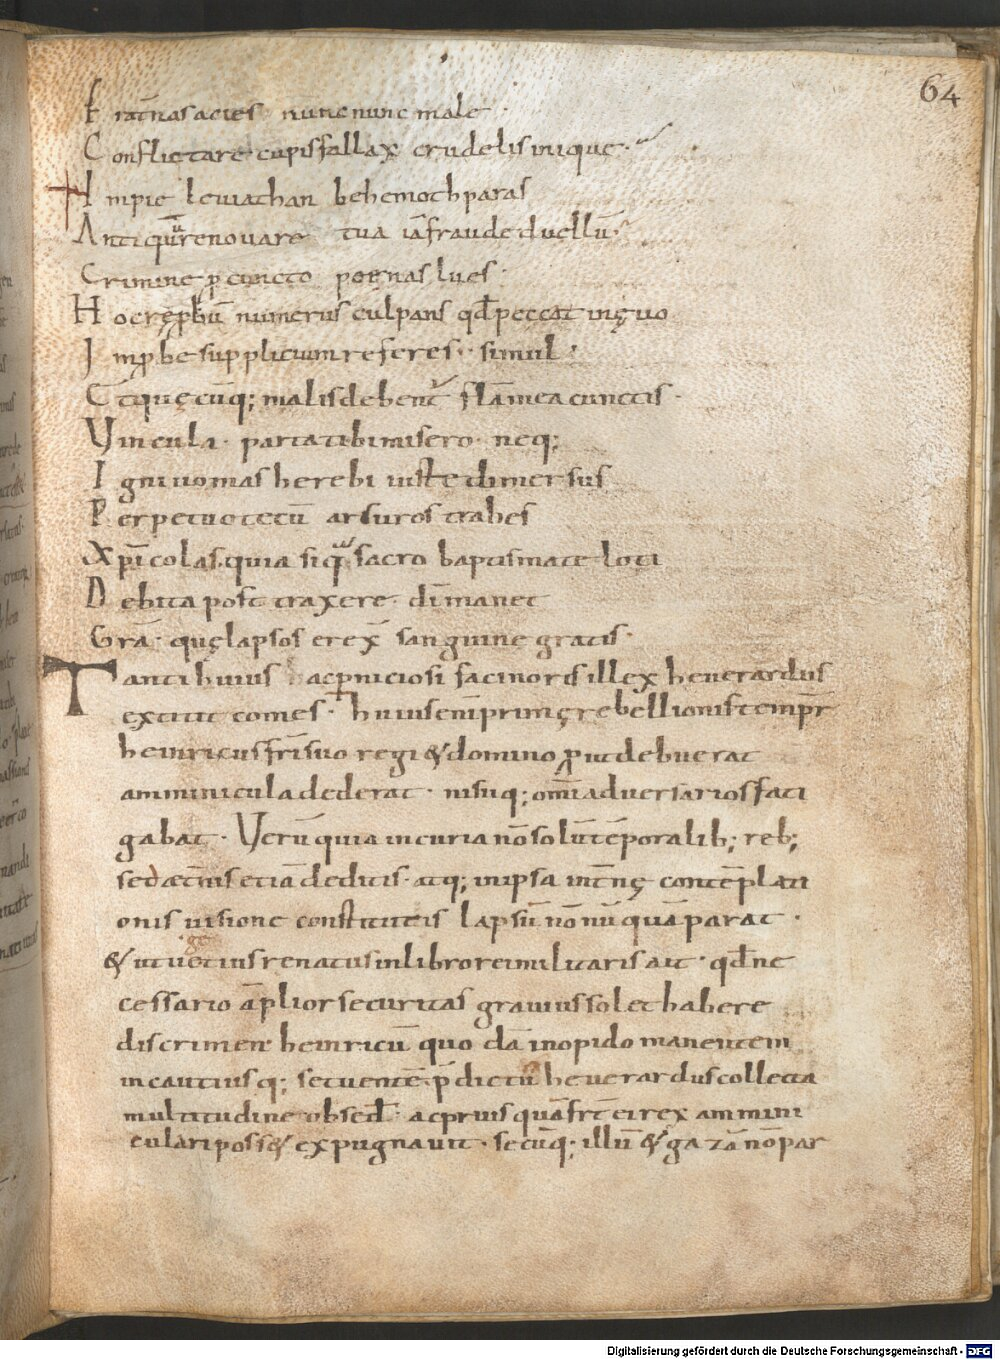 64
Frat̄nas acies nunc nunc male
Conflictare cupis fallax crudelis inique.
Impie leviathan behemoth paras
Antiquū renovare tua iā fraude duellū.
Crimine ꝓ cuncto poenas lues.
Hoc numerus culpans qđ peccat in ęvo
Imꝓbe supplicium referes. simul.
Atque cūq; malis debent flāmea cunctis.
Vincula. parta tibi misero. neq;
Ignivomas herebi iuste dimersus
Perpetuo tecū arsuros trahes
Xp̄icolas. quia siq̄ sacro baptismate loti
Debita post traxere. dimanet
Gr̄a. quę lapsos erex̄ sanguine gratis.
Tanti huius ac ꝑniciosi facinoris illex heverardus
extitit comes. huius eni primę rebellionis temp̄r
heinricus fr̄i suo regi & domino ꝓut debuerat
amminicula dederat. nisuq; om̄i adversarios fati
gabat. Verū quia incuria nō solū tēporalib; reb;
sed aet̄nis etiā deditis. atq; in ipsa int̄nę contēplati
onis visione constitutis lapsū nō nū quā parat.
& ut vetius renatus in libro rei militaris ait. qđ ne
cessario āplior securitas gravius solet habere
discrimen. heinricū quo dā in opido manentem
incautius q; se tuentē. p̄dictus heverardus collecta
multitudine obsed̄. ac prius quā fr̄ ei rex ammini
culari poss& expugnavit. secūq; illū & gazā nō par
Digitalisierung gefördert durch die Deutsche Forschungsgemeinschaft - DFG